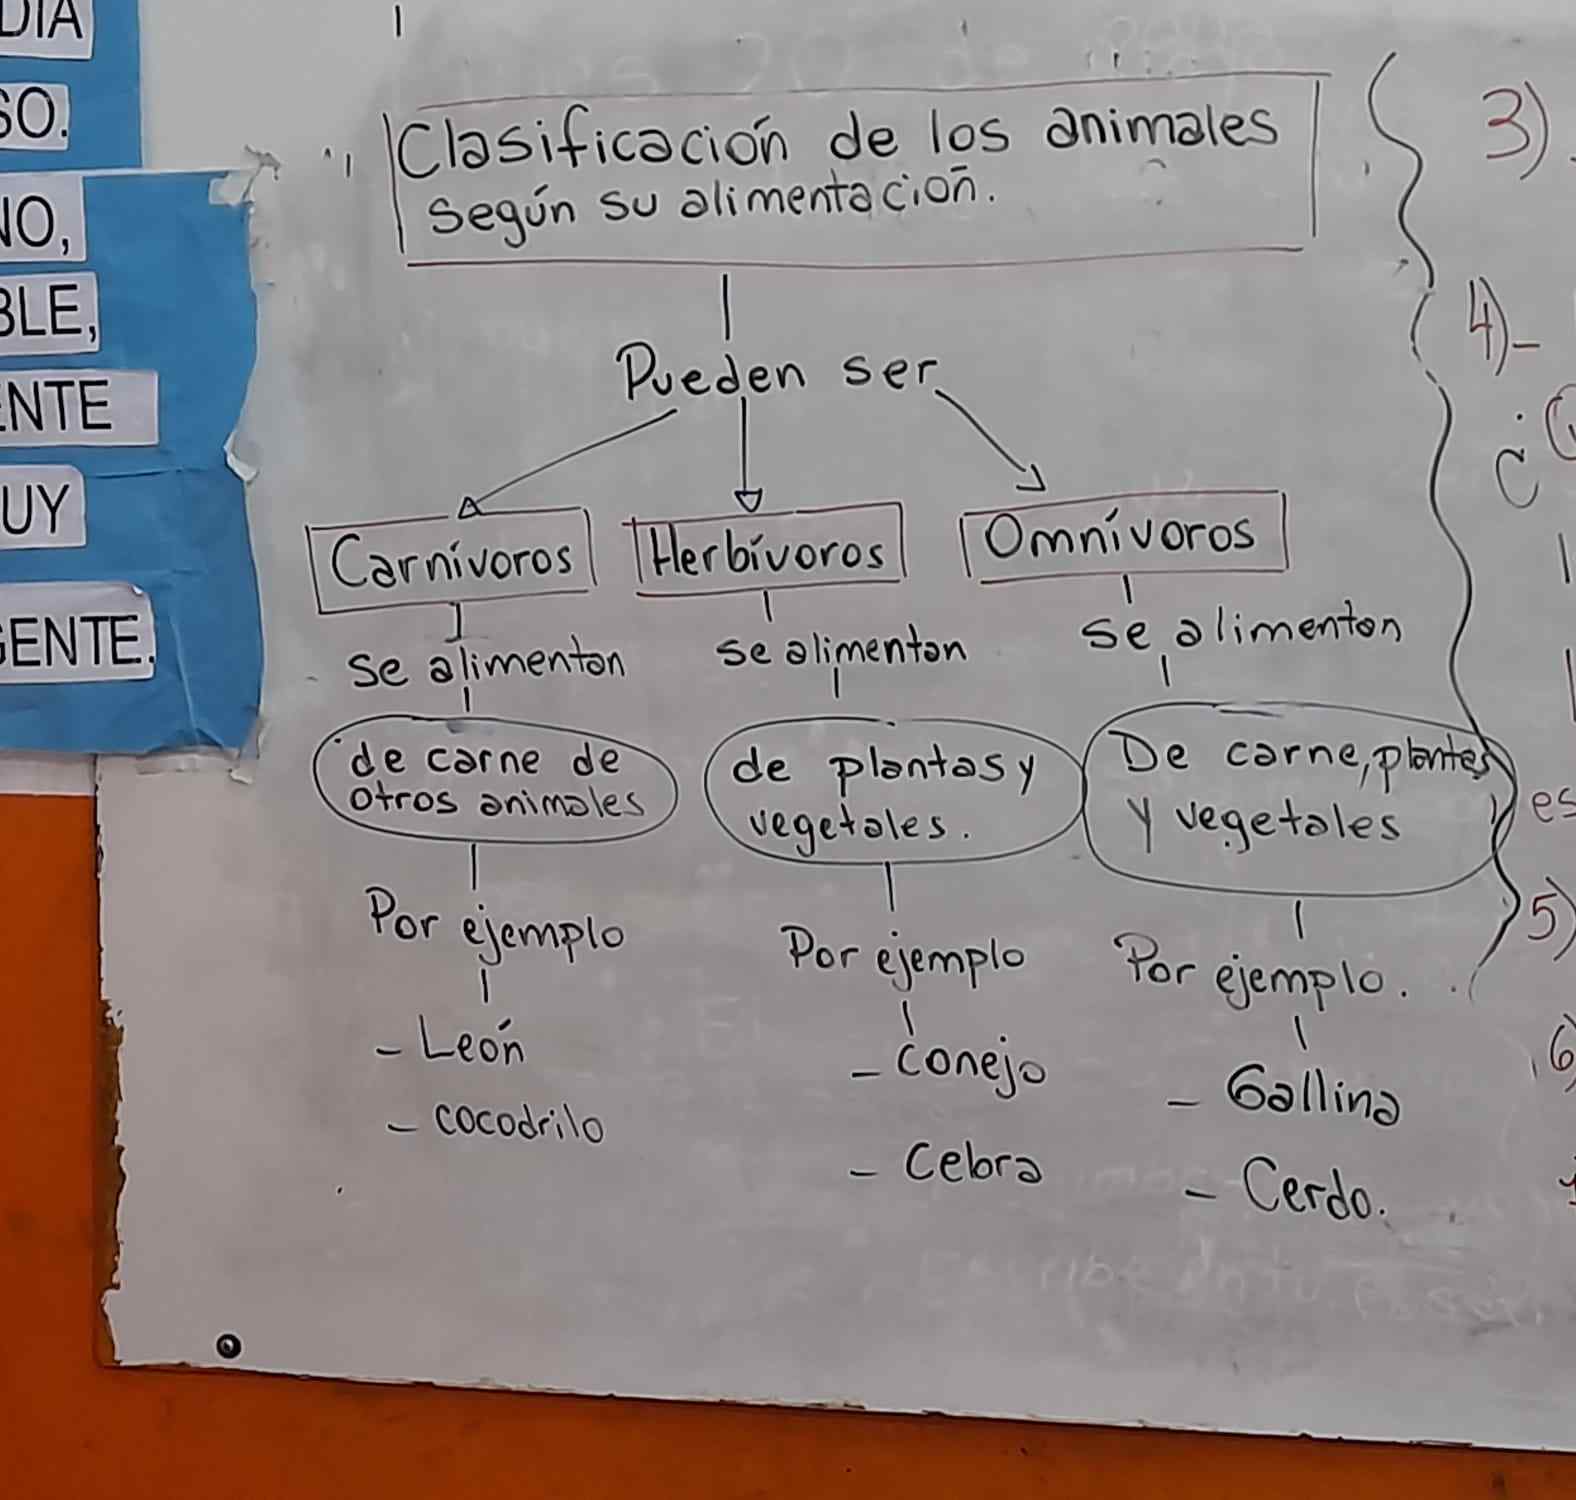 DIA
SO.
NO,
BLE,
ENTE
UY
GENTE.
Clasificación de los animales
según su alimentación.
Pueden ser
Carnívoros
se alimentan
de carne de
otros animales
Por ejemplo
- León
- cocodrilo
Herbívoros
se alimentan
de plantas y
vegetales.
Por ejemplo
- conejo
- Cebra
Omnívoros
se alimentan
De carne, plantas
y vegetales
Por ejemplo.
- Gallina
- Cerdo.
3)
4)-
es
5)
6)